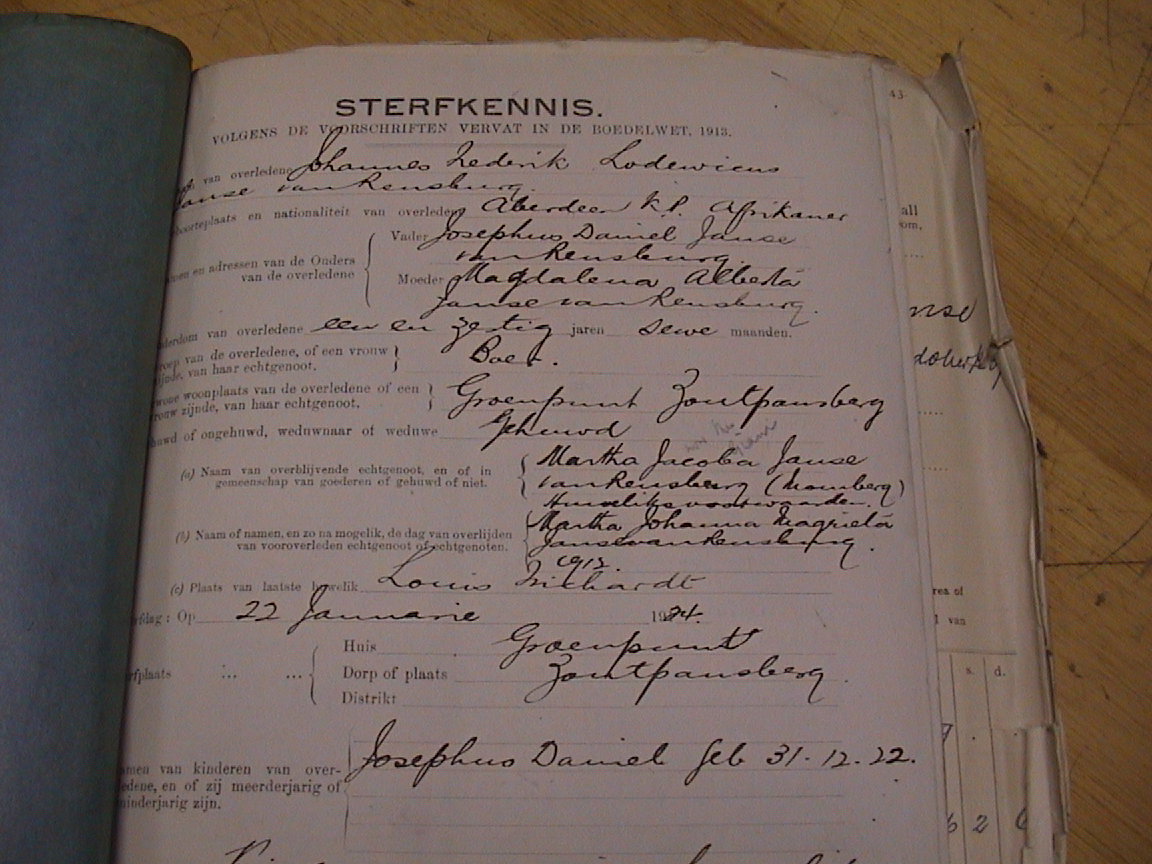 STERFKENNIS.
VOLGENS DE VOORSCHRIFTEN VERVAT IN DE BOEDELWET, 1913.
van overledene Johannes Frederik Lodewicus
Janse van Rensburg.
geboorteplaats en nationaliteit van overledene Aberdeen K.P. Afrikaner
Namen en adressen van de Ouders van de overledene
Vader Josephus Daniel Janse
van Rensburg.
Moeder Magdalena Alberta
Janse van Rensburg.
ouderdom van overledene een en zestig jaren sewe maanden.
Beroep van de overledene, of een vrouw
zijnde, van haar echtgenoot. Boer.
gewone woonplaats van de overledene of een
vrouw zijnde, van haar echtgenoot. Groenpunt Zoutpansberg
gehuwd of ongehuwd, weduwnaar of weduwe Gehuwd
(a) Naam van overblijvende echtgenoot, en of in
gemeenschap van goederen of gehuwd of niet.
Martha Jacoba Janse
van Rensburg (Momberg)
Huweliks voorwaarden.
(b) Naam of namen, en zo na mogelik, de dag van overlijden
van vooroverleden echtgenoot of echtgenoten.
Martha Johanna Magrieta
Janse van Rensburg.
1912.
(c) Plaats van laatste huwelik Louis Trichardt
Sterfdag: Op 22 Januarie 1924.
Sterfplaats ... ...
Huis Groenpunt
Dorp of plaats Zoutpansberg
Distrikt
Namen van kinderen van over-
ledene, en of zij meerderjarig of
minderjarig zijn.
Josephus Daniel geb 31.12.22.
43
all
nse
rea of
van
s. d.
6 2 6